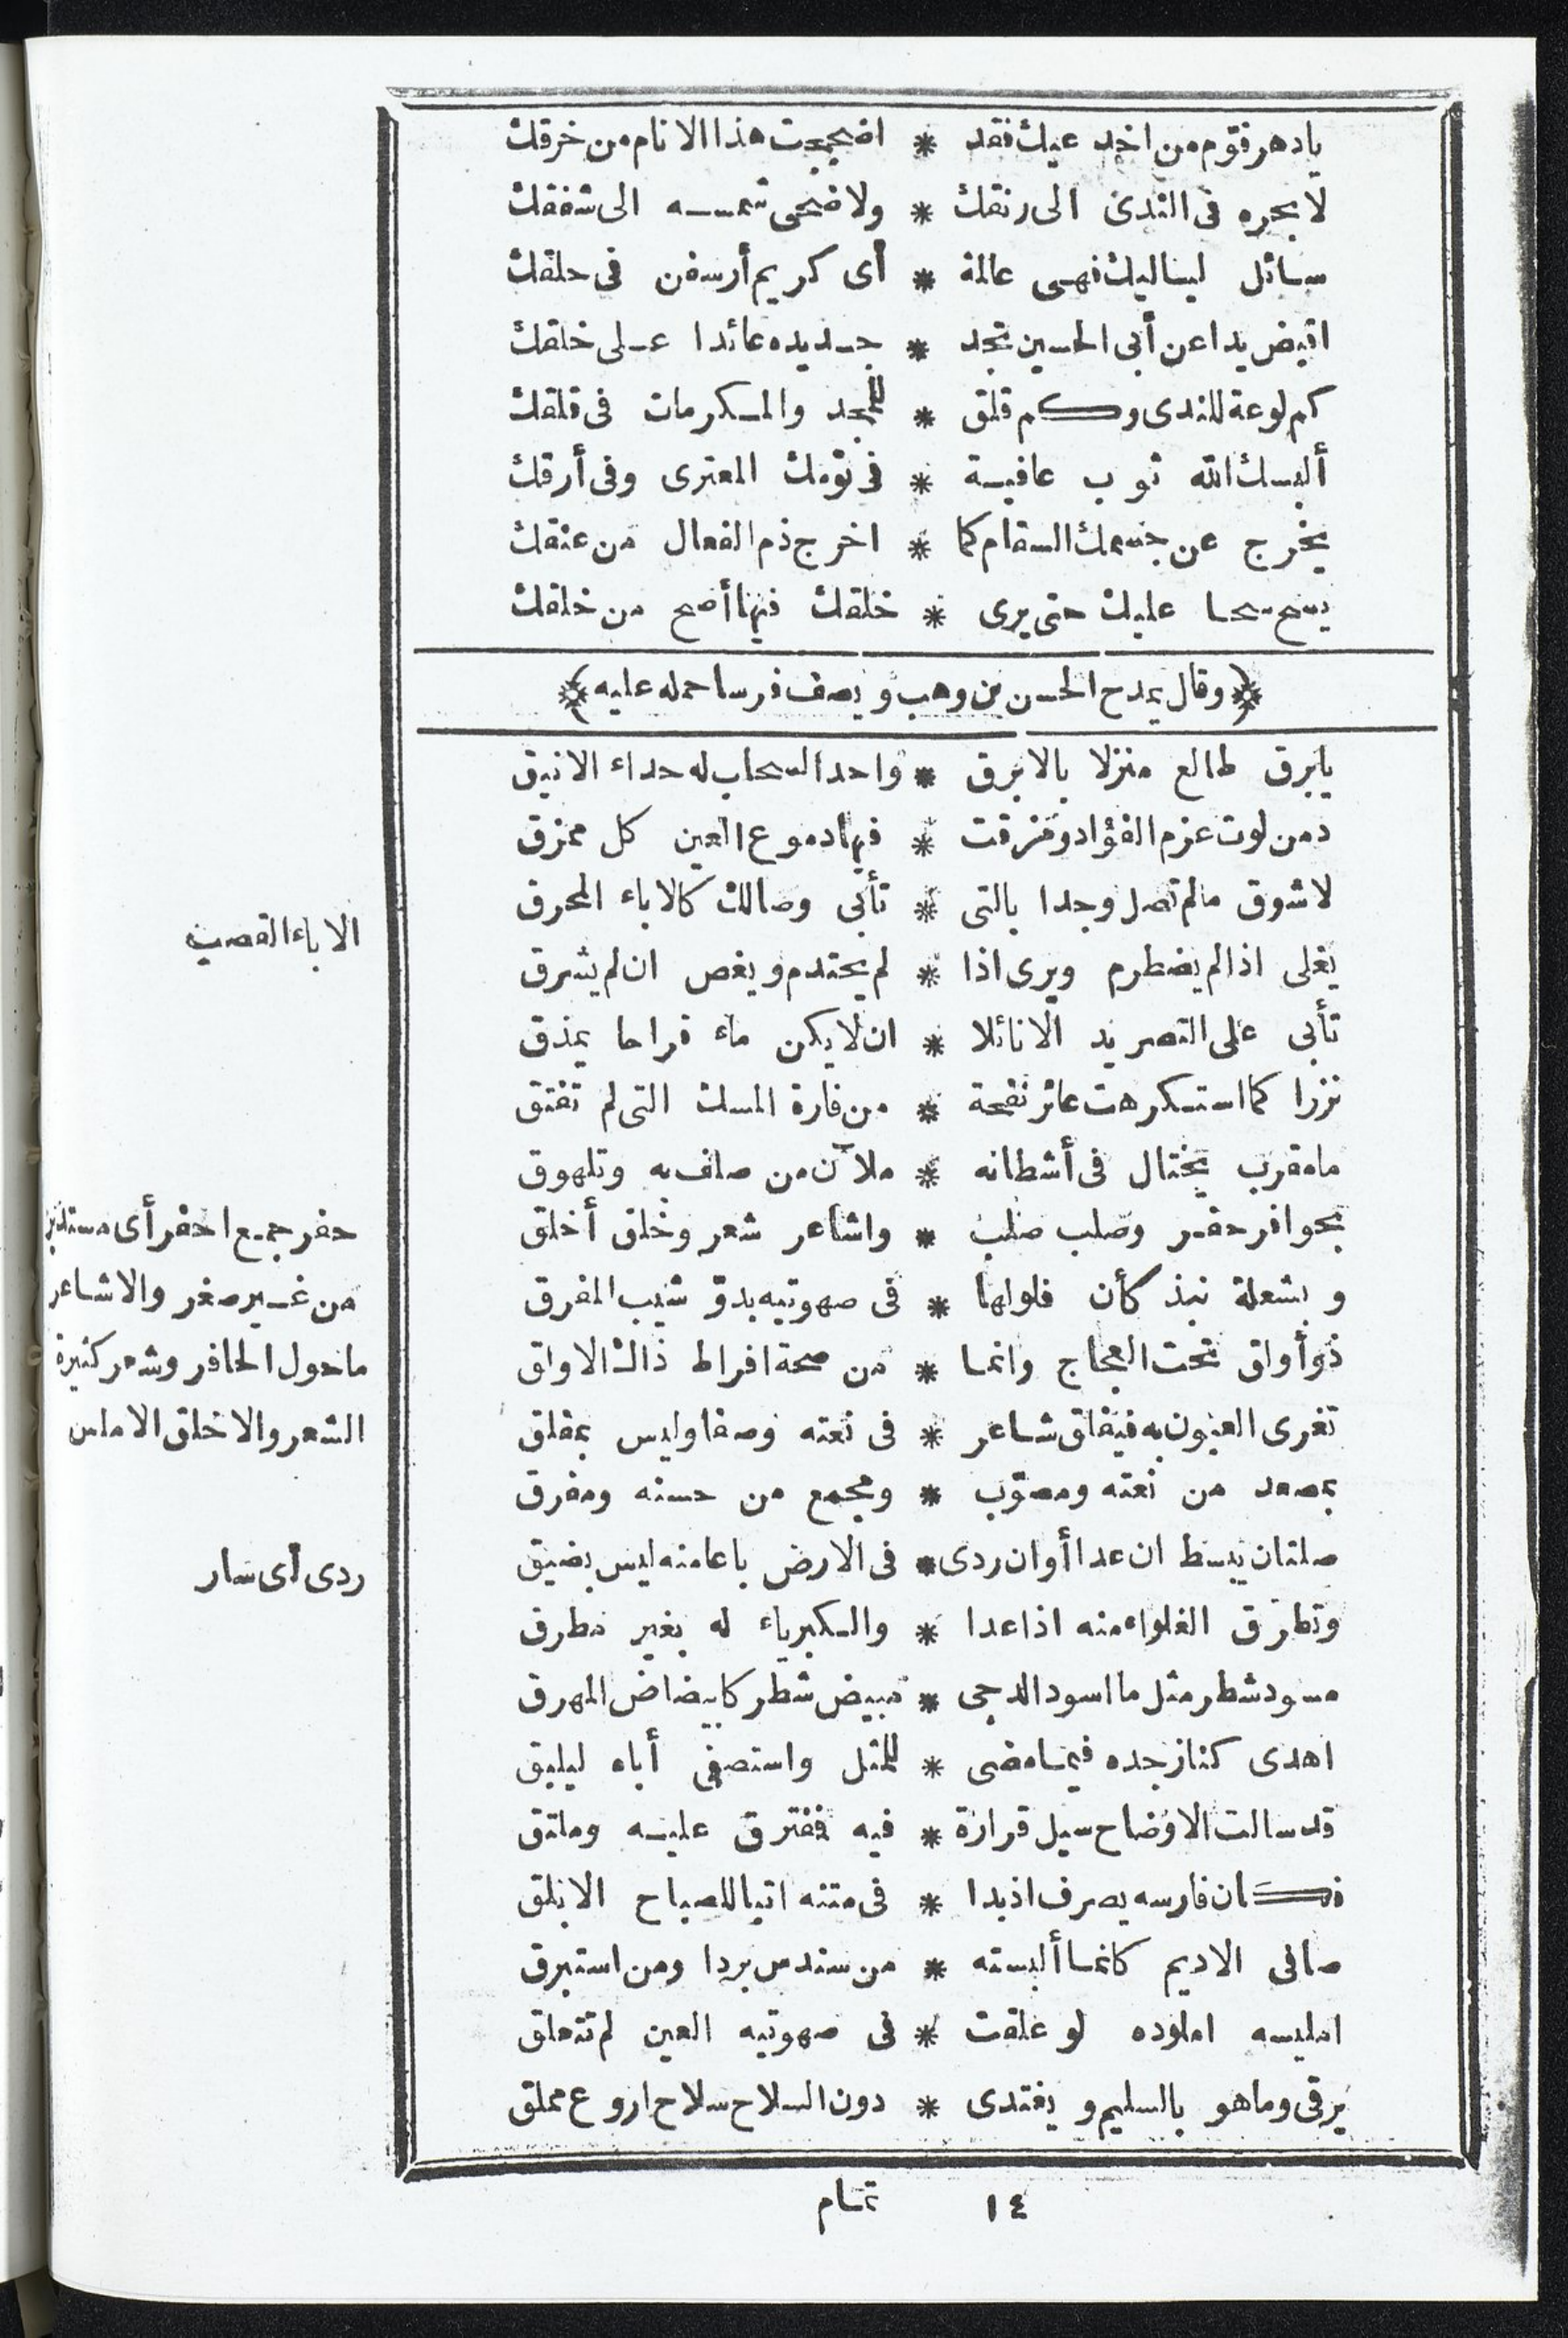 يادهر فقوّم من اخدعيك فقد * اضججت هذا الانام من خرقك
لا بحره فى الندى الى رنقك * ولا ضحى شمسه الى شفقك
سائل لياليك فهى عالمة * أى كريم أرسفن فى حلقك
اقبض يدا عن أبى الحسين تجد * جديده عائدا على خلقك
كم لوعة للندى وكم قلق * للمجد والمكرمات فى قلقك
ألبسك الله ثوب عافية * فى نومك المعترى وفى أرقك
يخرج عن جسمك السقام كما * اخرج ذم الفعال من عنقك
يسح سحا عليك حتى يرى * خلقك فيها أصح من خلقك
﴿وقال يمدح الحسن بن وهب ويصف فرسا حمله عليه﴾
يابرق طالع منزلا بالابرق * واحد السحاب له حداء الانيق
دمن لوت عزم الفؤاد ومزقت * فيها دموع العين كل ممزق
لا شوق مالم تصل وجدا بالتى * تأبى وصالك كالاباء المحرق
الاباء القصب
يغلى اذا لم يضطرم ويرى اذا * لم يحتدم ويغص ان لم يشرق
تأبى على التصريد الا نائلا * ان لا يكن ماء قراحا يمذق
نزرا كما استكرهت عائر نفحة * من فارة المسك التى لم تفتق
ما مقرب يختال فى أشطانه * ملآن من صلف به وتلهوق
بحوافر حفر وصلب صلب * واشاعر شعر وخلق أخلق
حفر جمع احفر أى مستدير
وبشعلة نبذ كأن فلولها * فى صهوتيه بدوّ شيب المفرق
من غير صغر والاشاعر
ذو أولق تحت العجاج وانما * من صحة افراط ذاك الاولق
ماحول الحافر وشعر كثيرة
تغرى العيون به فيفلق شاعر * فى نعته وصفا وليس بمفلق
الشعر والاخلق الاملس
بمصعد من نعته ومصوّب * ومجمع من حسنه ومفرق
صلتان يبسط ان عدا أو ان ردى * فى الارض باعا منه ليس بضيق
ردى أى سار
وتطرق الغلواء منه اذا عدا * والكبرياء له بغير مطرق
مسود شطر مثل ما اسود الدجى * مبيض شطر كابيضاض المهرق
اهدى كنار جده فيما مضى * للمثل واستصفى أباه ليلبق
قد سالت الاوضاح سيل قرارة * فيه فمفترق عليه وملتق
فكان فارسه يصرف اذ بدا * فى متنه ابنا للصباح الابلق
صافى الاديم كانما ألبسته * من سندس بردا ومن استبرق
امليسه املوده لو علقت * فى صهوتيه العين لم تتعلق
يرقى وما هو بالسليم ويغتدى * دون السلاح سلاح اروع مملق
١٤ تمام